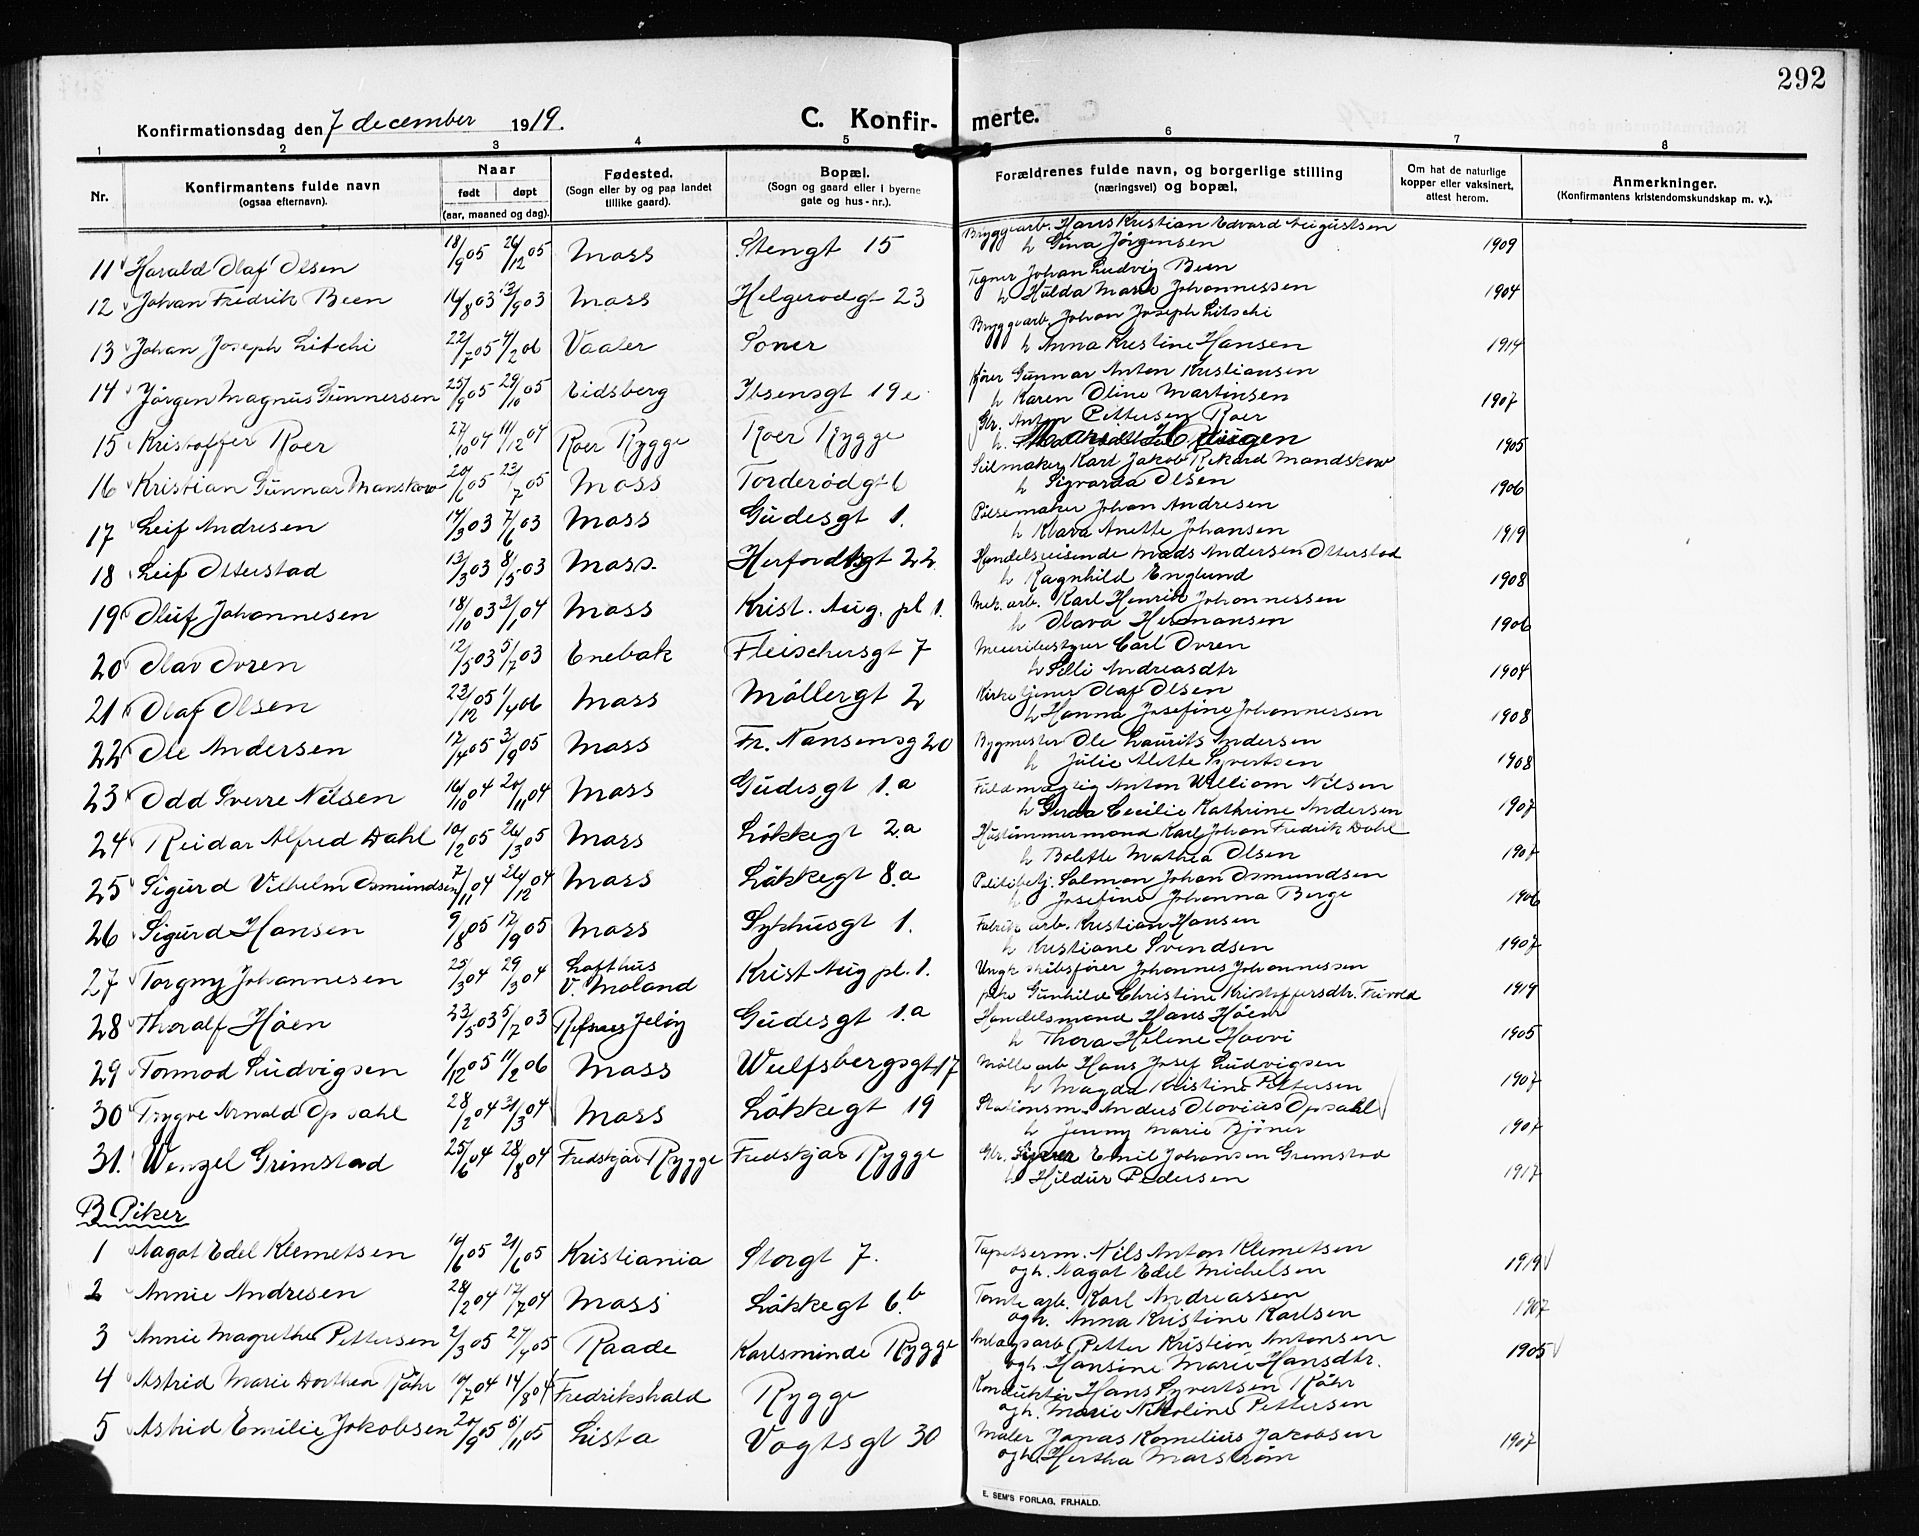 292
Konfirmationsdag den 7 december 1919.
C. Konfir- merte.
1 2 3 4 5 6 7 8
Nr.
Konfirmantens fulde navn (ogsaa efternavn).
Naar født døpt (aar, maaned og dag).
Fødested. (Sogn eller by og paa landet tillike gaard).
Bopæl. (Sogn og gaard eller i byerne gate og hus-nr.).
Forældrenes fulde navn, og borgerlige stilling (næringsvei) og bopæl.
Om hat de naturlige kopper eller vaksinert, attest herom.
Anmerkninger. (Konfirmantens kristendomskundskap m. v.).
11 Harald Olaf Olsen 18/9 05 26/12 05 Moss Stengt 15 Bryggearb. Hans Kristian Edvard Augustsen
h Gina Jørgensen 1909
12 Johan Fredrik Been 16/8 03 13/9 03 Moss Helgerødgt 23 Tegner Johan Ludvig Been
h Hulda Marie Johannessen 1904
13 Johan Joseph Litschi 22/7 05 4/2 06 Vaaler Soner Bryggearb. Johan Joseph Litschi
h Anna Kristine Hansen 1914
14 Jørgen Magnus Gunnersen 25/9 05 29/10 05 Eidsberg Ibsensgt 19 e Kjører Gunnar Anton Kristiansen
h Karen Oline Martinsen 1907
15 Kristoffer Roer 27/10 04 11/12 04 Roer Rygge Roer Rygge Gbr. Anton Pettersen Roer
h. Haugen 1905
16 Kristian Gunnar Manskow 20/6 05 23/7 05 Moss Torderødgt 6 Seilmaker Karl Jakob Rikard Mandskow
h Sigvarda Olsen 1906
17 Leif Andresen 14/3 03 7/6 03 Moss Gudesgt 1. Pølsemaker Johan Andresen
h Klara Anette Johansen 1919
18 Leif Otterstad 13/3 03 8/5 03 Moss Herfordtsgt 22 Handelsreisende Mads Andersen Otterstad
h Ragnhild Englund 1908
19 Oluf Johannesen 18/10 03 3/1 04 Moss Krist. Aug. pl 1. Mek. arb. Karl Henrik Johannessen
h Olava Hermansen 1906
20 Olav Ovren 12/5 03 5/7 03 Enebak Fleischersgt 7 Meieribestyrer Carl Ovren
h Silli Andreasdtr 1904
21 Olaf Olsen 23/12 05 1/4 06 Moss Møllergt 2 Kirketjener Olaf Olsen
h Hanna Josefine Johannessen 1908
22 Ole Andersen 12/4 05 3/9 05 Moss Fr. Nansensg 20 Bygmester Ole Laurits Andersen
h Julie Alette Syvertsen 1908
23 Odd Sverre Nilsen 16/10 04 20/11 04 Moss Gudesgt 1.a Fuldmægtig Anton William Nilsen
h Gerda Cecilie Kathrine Andersen 1907
24 Reidar Alfred Dahl 10/2 05 26/3 05 Moss Løkkegt 2.a Hustømmermand Karl Johan Fredrik Dahl
h Bolette Mathea Olsen 1907
25 Sigurd Vilhelm Osmundsen 7/11 04 26/12 04 Moss Løkkegt 8.a Politibetj. Salmon Johan Osmundsen
h Josefine Johanna Berge 1906
26 Sigurd Hansen 9/8 05 17/9 05 Moss Sykhusgt 1. Fabrik arb. Kristian Hansen
h Kristiane Svendsen 1907
27 Torgny Johannesen 25/3 04 29/3 04 Lofthus V. Moland Krist Aug pl. 1. Ungk. skibsfører Johannes Johannessen
pike Gunhilde Christine Kristoffersdtr. Feivold 1919
28 Thoralf Høen 23/5 03 5/7 03 Refsnes Jeløy Gudesgt 1.a Handelsmand Hans Høen
h Thora Helene Hoovi 1905
29 Tormod Ludvigsen 1/12 05 11/2 06 Moss Wulfsbergsgt 17 Møllearb Hans Josef Ludvigsen
h Magda Kristine Pettersen 1907
30 Trygve Arnold Opsahl 28/2 04 31/3 04 Moss Løkkegt 19 Stationsm. Anders Olovius Opsahl
h Jenny Marie Bjøner 1907
31. Wenzel Grimstad 25/6 04 28/8 04 Fredskjær Rygge Fredskjær Rygge Gbr. Emil Johansen Grimstad
h Hildur Pedersen 1917
B Piker
1 Aagot Edel Klemetsen 10/6 05 21/6 05 Kristiania Storgt 7. Tapetserm. Nils Anton Klemetsen
ogh. Aagot Edel Michelsen 1919
2 Annie Andresen 28/2 04 17/7 04 Moss Løkkegt 6.b Tomte arb. Karl Andreassen
ogh. Anna Kristine Karlsen 1907
3 Annie Magrethe Pettersen 2/3 05 27/4 05 Raade Karlsminde Rygge Anlægsarb Petter Kristian Antonsen
ogh Hansine Marie Hansdtr. 1905
4 Astrid Marie Dorthea Röhr 10/7 04 14/8 04 Fredrikshald Rygge Konduktør Hans Syvertsen Röhr
ogh. Marie Nikoline Pettersen
5 Astrid Emilie Jakobsen 20/9 05 5/11 05 Lista Vogtsgt 30 Maler Jonas Kornelius Jakobsen
ogh Hertha Marstrøm 1907
E. SEM'S FORLAG, FR.HALD.